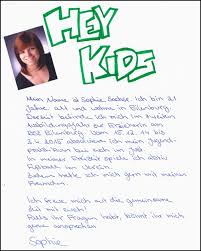 HEY
KIDS
Mein Name ist Sophie. Ich bin 21
Jahre alt und wohne in Eilenburg.
Derzeit befinde ich mich im
Ausbildung zur Erzieherin am
BSZ Eilenburg. Vom 15.12.14 bis
2.2.2015 absolviere ich mein
praktikum bei euch im
In meiner Freizeit spiele ich aktiv
Fußball im Verein.
treffe ich mich gern mit meinen
Freunden.
Ich freue mich auf die gemeinsame
Zeit mit euch.
Falls ihr Fragen habt, könnt ihr mich
gerne ansprechen
Sophie